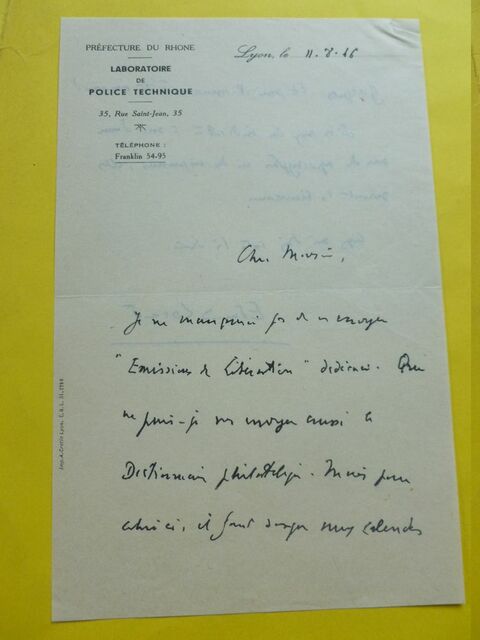 PRÉFECTURE DU RHONE
LABORATOIRE
DE
POLICE TECHNIQUE
35, Rue Saint-Jean, 35
TÉLÉPHONE :
Franklin 54-95
Lyon, le 11-8-46
Cher Monsieur,
Je ne manquerai pas de vous envoyer
"Emissions de Libération" dédicacé. Que
ne puis-je vous envoyer aussi le
Dictionnaire philatélique. Mais pour
celui-ci, il faut aux calendes